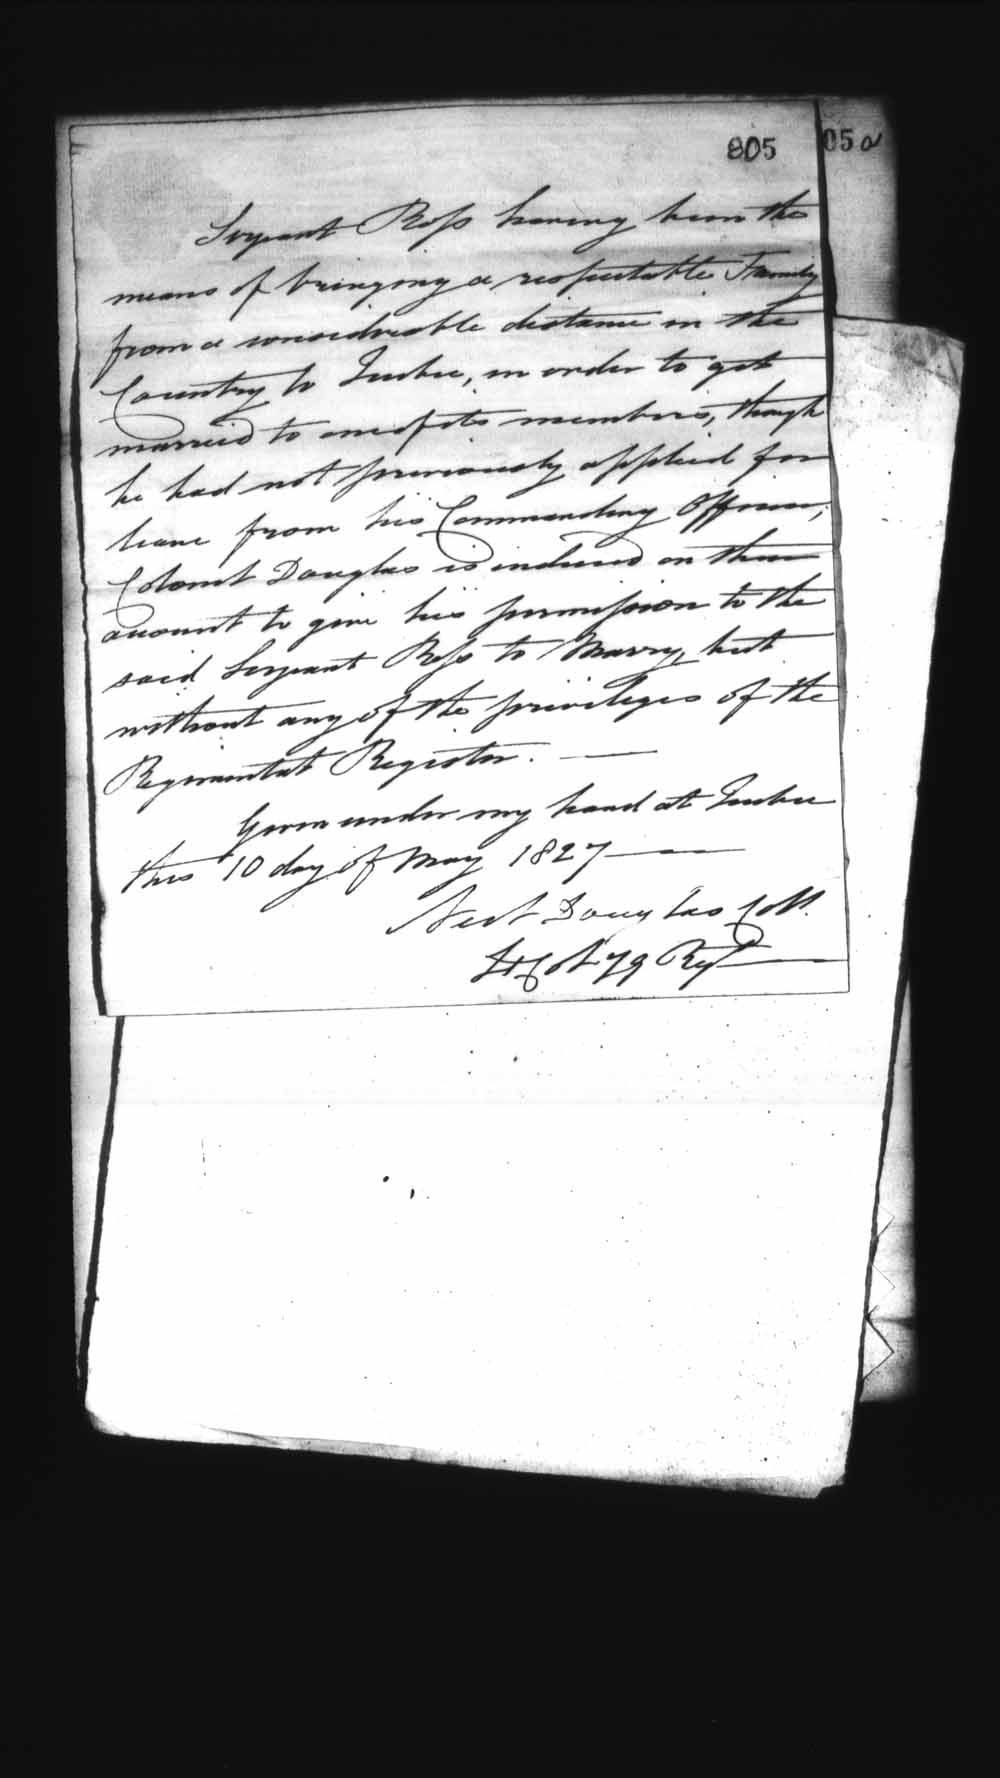 805
05 a
Serjeant Ross having been the
means of bringing a respectable Family
from a considerable distance in the
Country to Quebec, in order to get
married to one of its members, though
he had not previously applied for
leave from his Commanding Officer,
Colonel Douglas is induced on that
account to give his permission to the
said Serjeant Ross to Marry, but
without any of the privileges of the
Regimental Register. —
Given under my hand at Quebec
this 10 day of May 1827 —
Neil Douglas Coll.
Lt Col 79 Regt